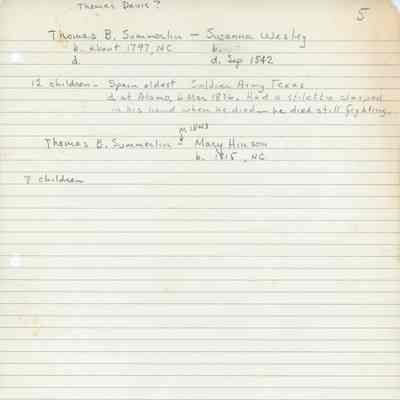 Thomas Davis?
5
Thomas B. Summerlin - Suzanna Wesley
b. about 1797, NC b.
d. d. Sep 1842
12 children - Spain oldest Soldier Army Texas
d at Alamo, 6 Mar 1836. Had a stiletto clasped
in his hand when he died - he died still fighting.
m 1843
Thomas B. Summerlin - Mary Hinson
b. 1815, NC
7 children